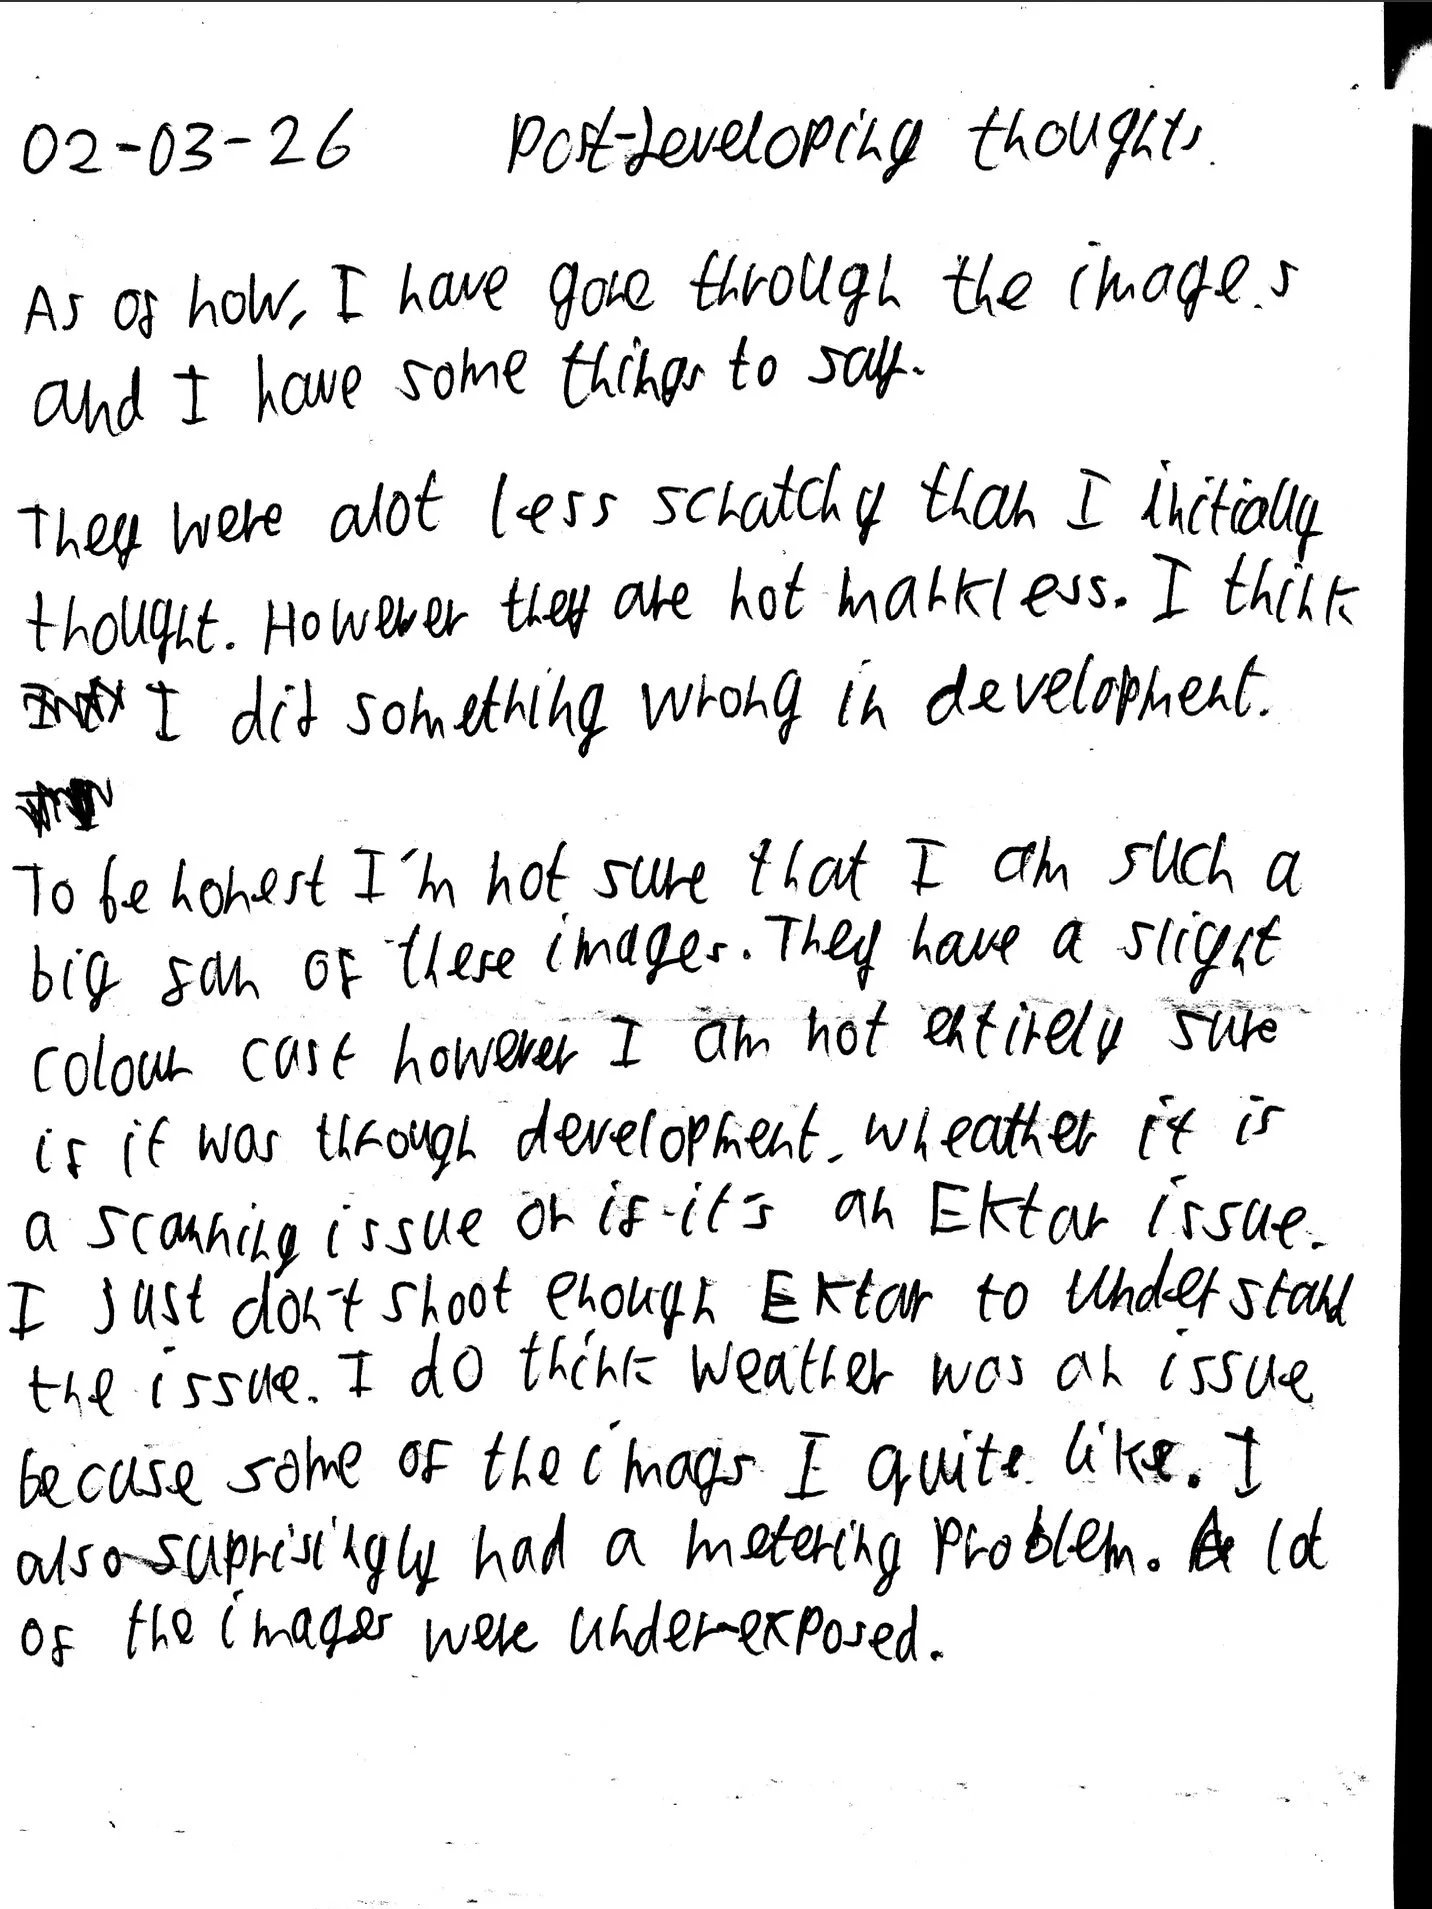 02-03-26 Post-Developing thoughts.
As of now, I have gone through the images
and I have some things to say.
They were alot less scratchy than I initially
thought. However they are not markless. I think
I did something wrong in development.
To be honest I'm not sure that I am such a
big fan of these images. They have a slight
colour cast however I am not entirely sure
if it was through development, wheather it is
a scanning issue or if it's an Ektar issue.
I just don't shoot enough Ektar to understand
the issue. I do think weather was an issue
becuse some of the imags I quite like. I
also suprisingly had a metering problem. A lot
of the images were under-exposed.